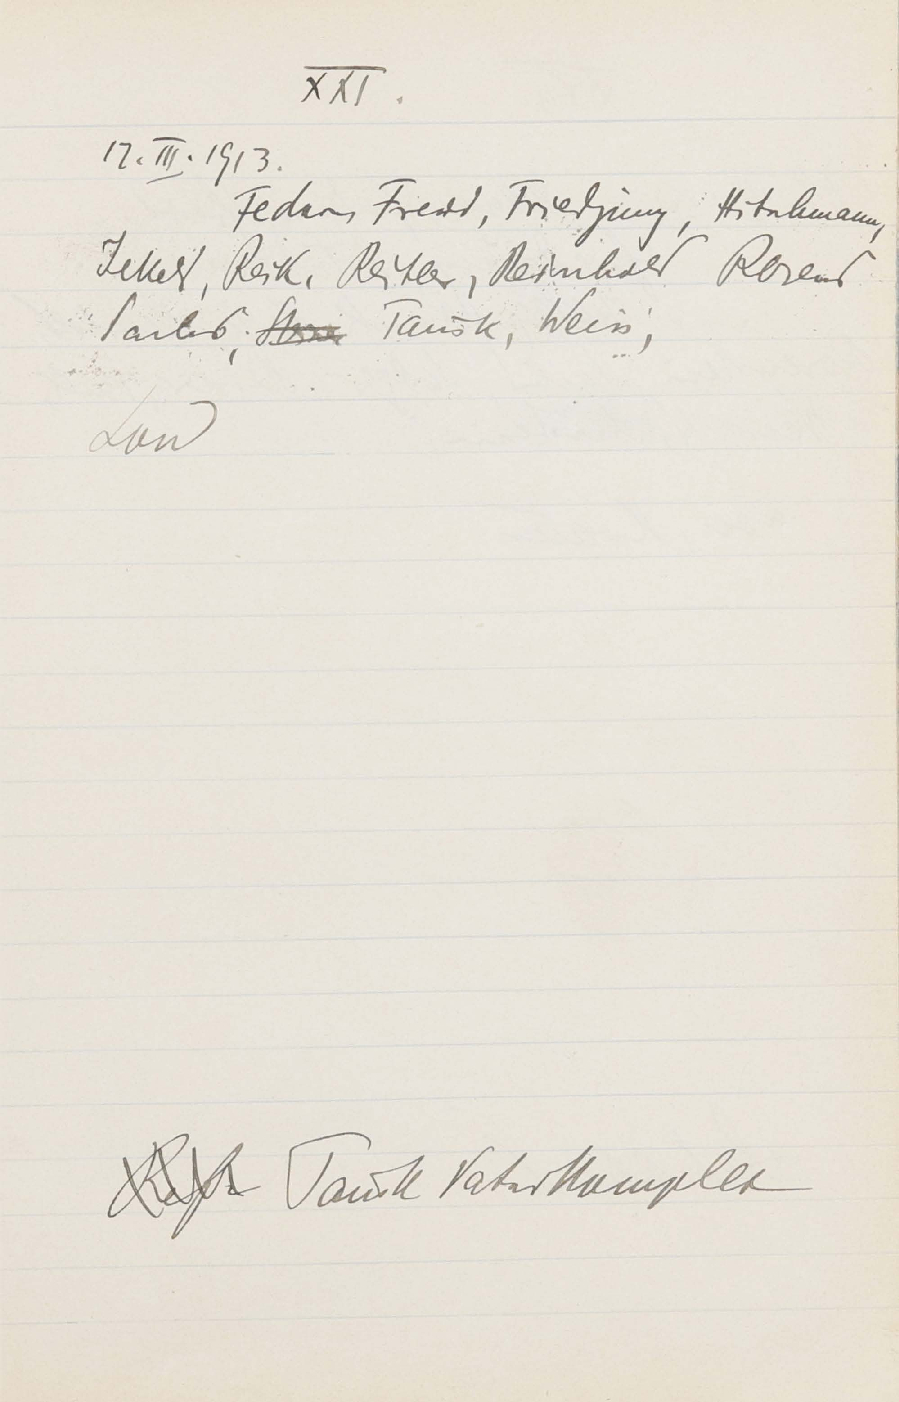 XXI.
12. III. 1913.
Federn, Freud, Friedjung, Hitschmann,
Jekels, Reik, Reitler, Reinhold Rosens
Sachs, Tausk, Weiss,
Lou
Tausk Vaterkomplex